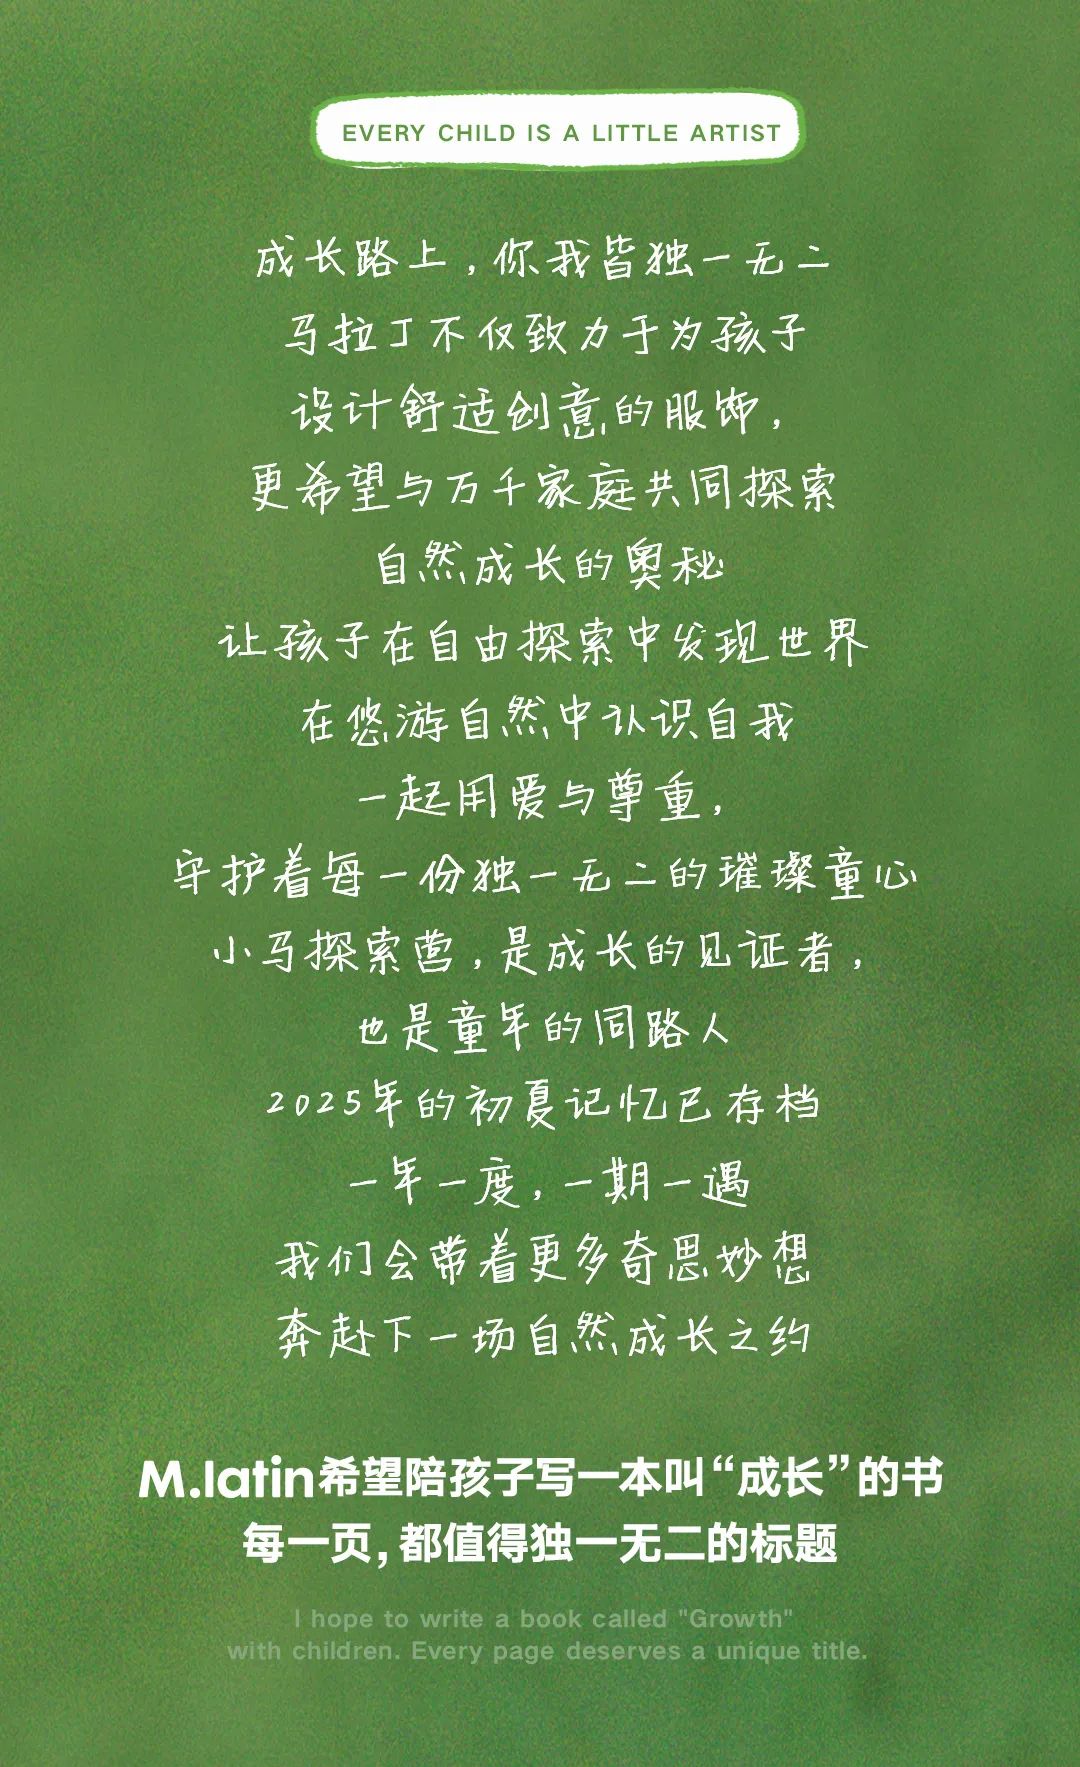 EVERY CHILD IS A LITTLE ARTIST
成长路上，你我皆独一无二
马拉丁不仅致力于为孩子
设计舒适创意的服饰，
更希望与万千家庭共同探索
自然成长的奥秘
让孩子在自由探索中发现世界
在悠游自然中认识自我
一起用爱与尊重，
守护着每一份独一无二的璀璨童心
小马探索营，是成长的见证者，
也是童年的同路人
2025年的初夏记忆已存档
一年一度，一期一遇
我们会带着更多奇思妙想
奔赴下一场自然成长之约
M.latin希望陪孩子写一本叫“成长”的书
每一页，都值得独一无二的标题
I hope to write a book called "Growth"
with children. Every page deserves a unique title.